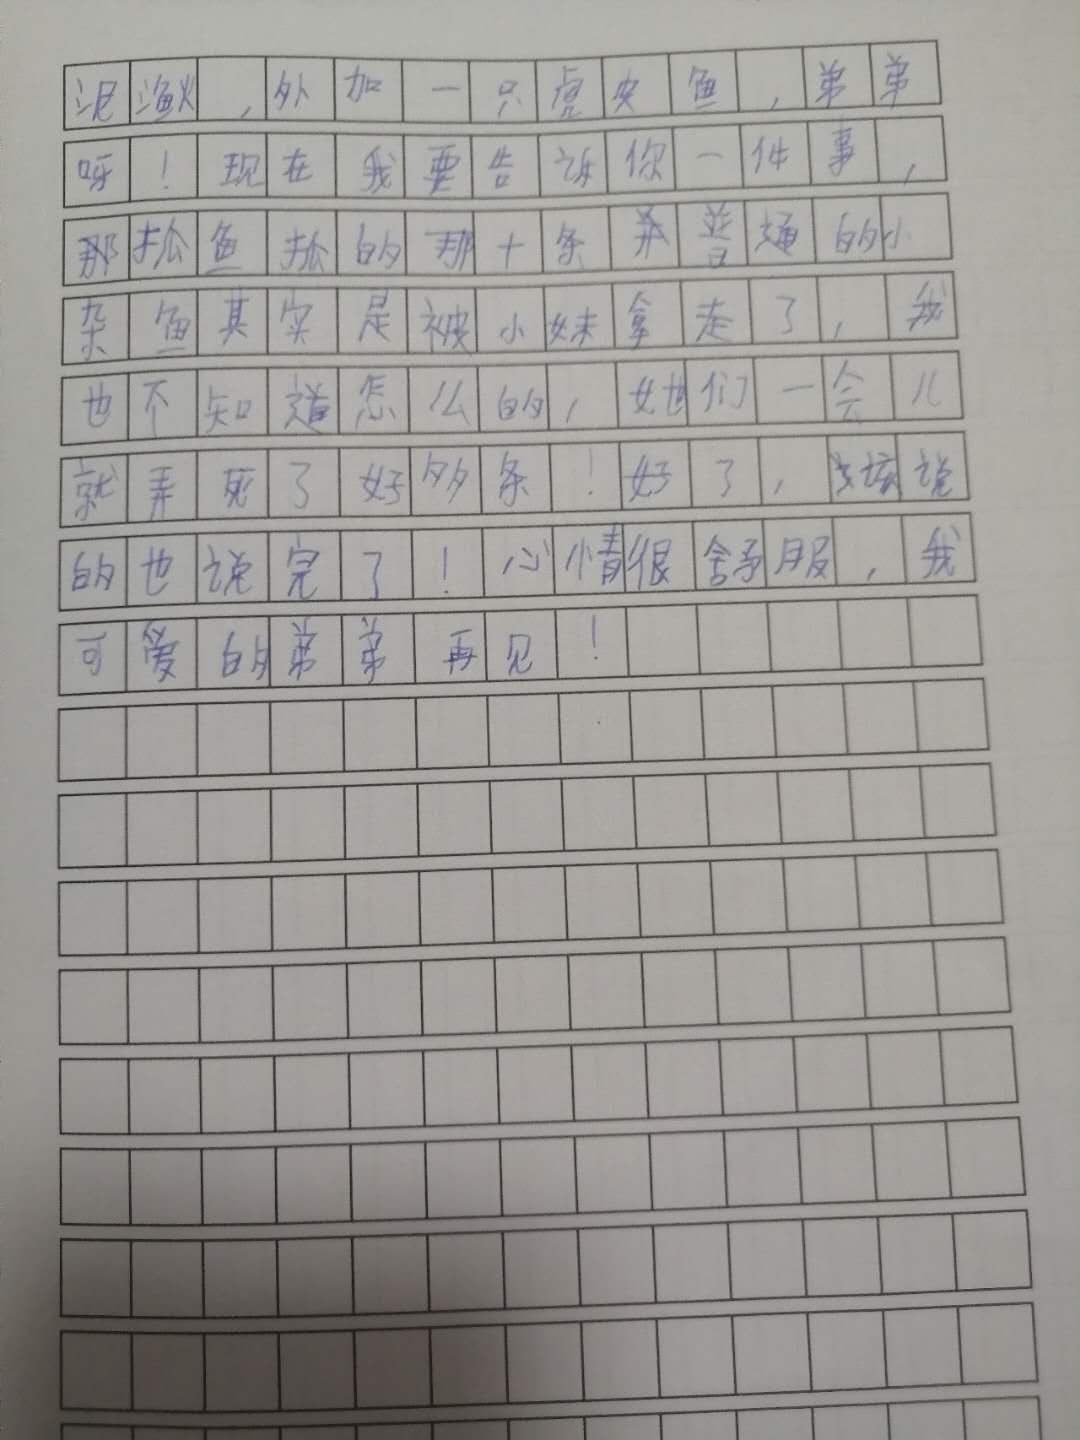 泥鳅,外加一只虎皮鱼,弟弟
呀!现在我要告诉你一件事,
那抓鱼抓的那十条普通的小
杂鱼其实是被小妹拿走了,我
也不知道怎么的,她们一会儿
就弄死了好多条!好了,该说
的也说完了!心情很舒服,我
可爱的弟弟再见!